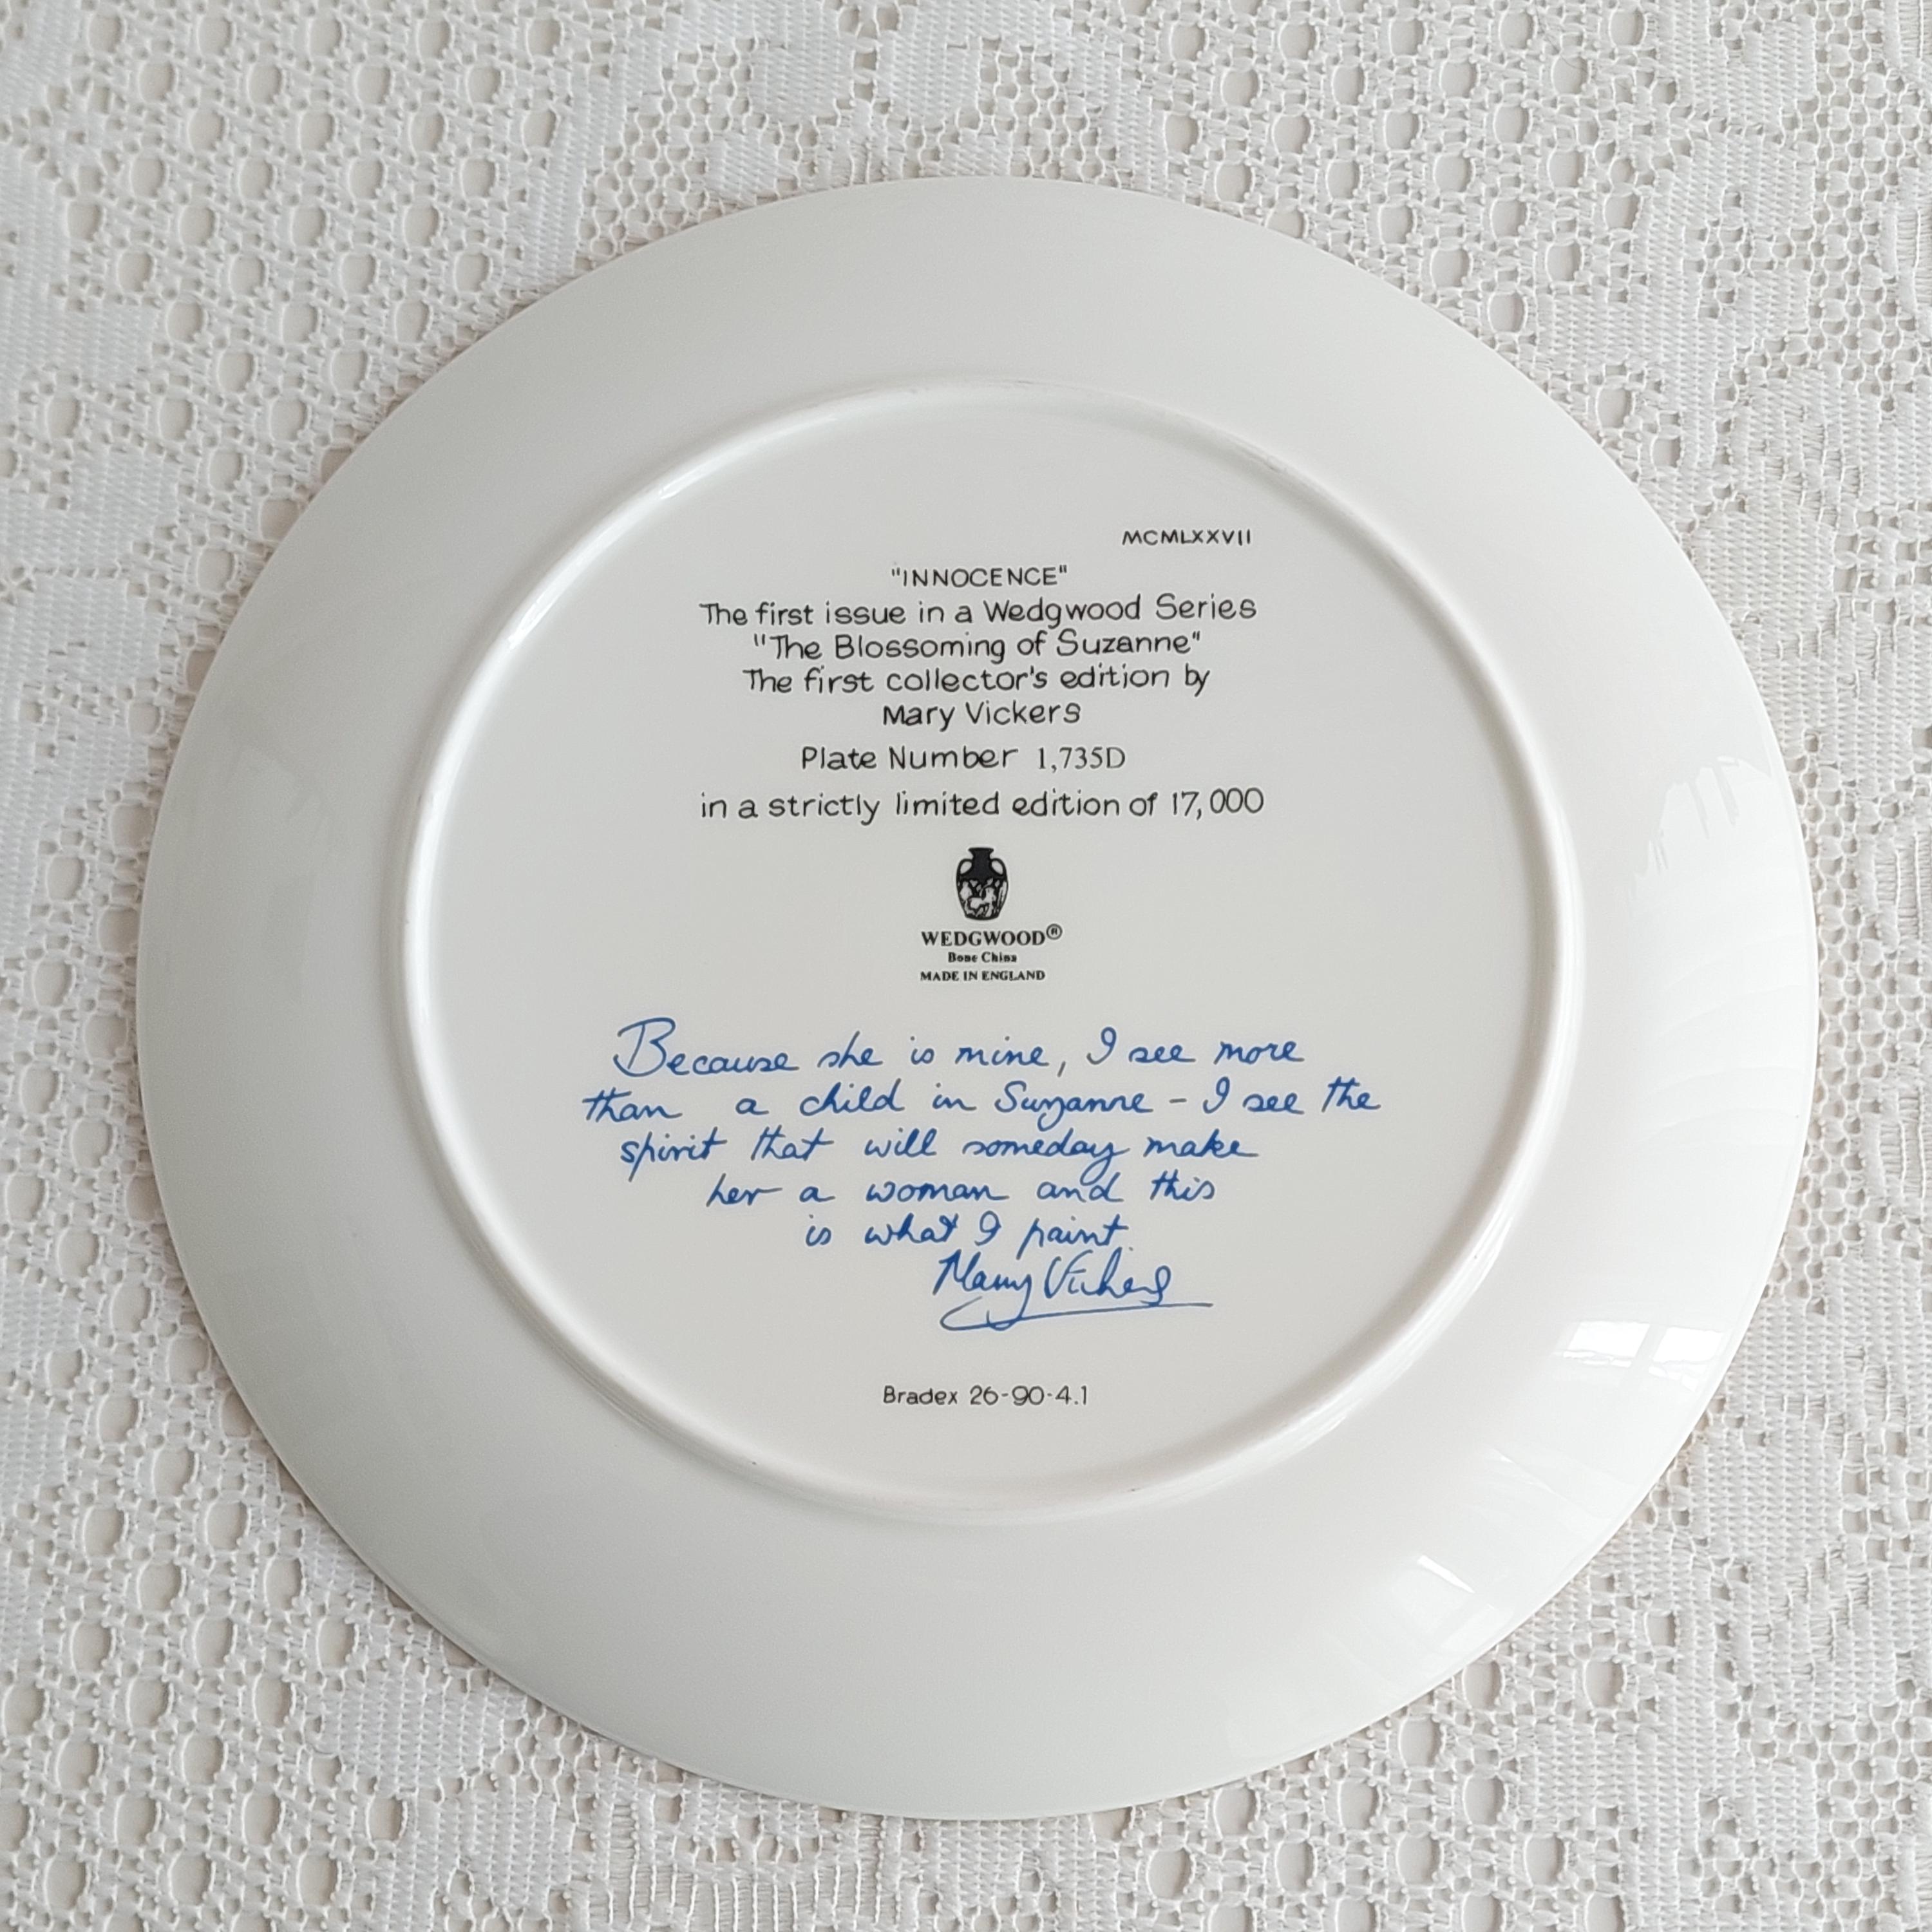 MCMLXXVII
"INNOCENCE"
The first issue in a Wedgwood Series
"The Blossoming of Suzanne"
The first collector's edition by
Mary Vickers
Plate Number 1,735D
in a strictly limited edition of 17,000
WEDGWOOD®
Bone China
MADE IN ENGLAND
Because she is mine, I see more
than a child in Suzanne - I see the
spirit that will someday make
her a woman and this
is what I paint.
Mary Vickers
Bradex 26-90-4.1